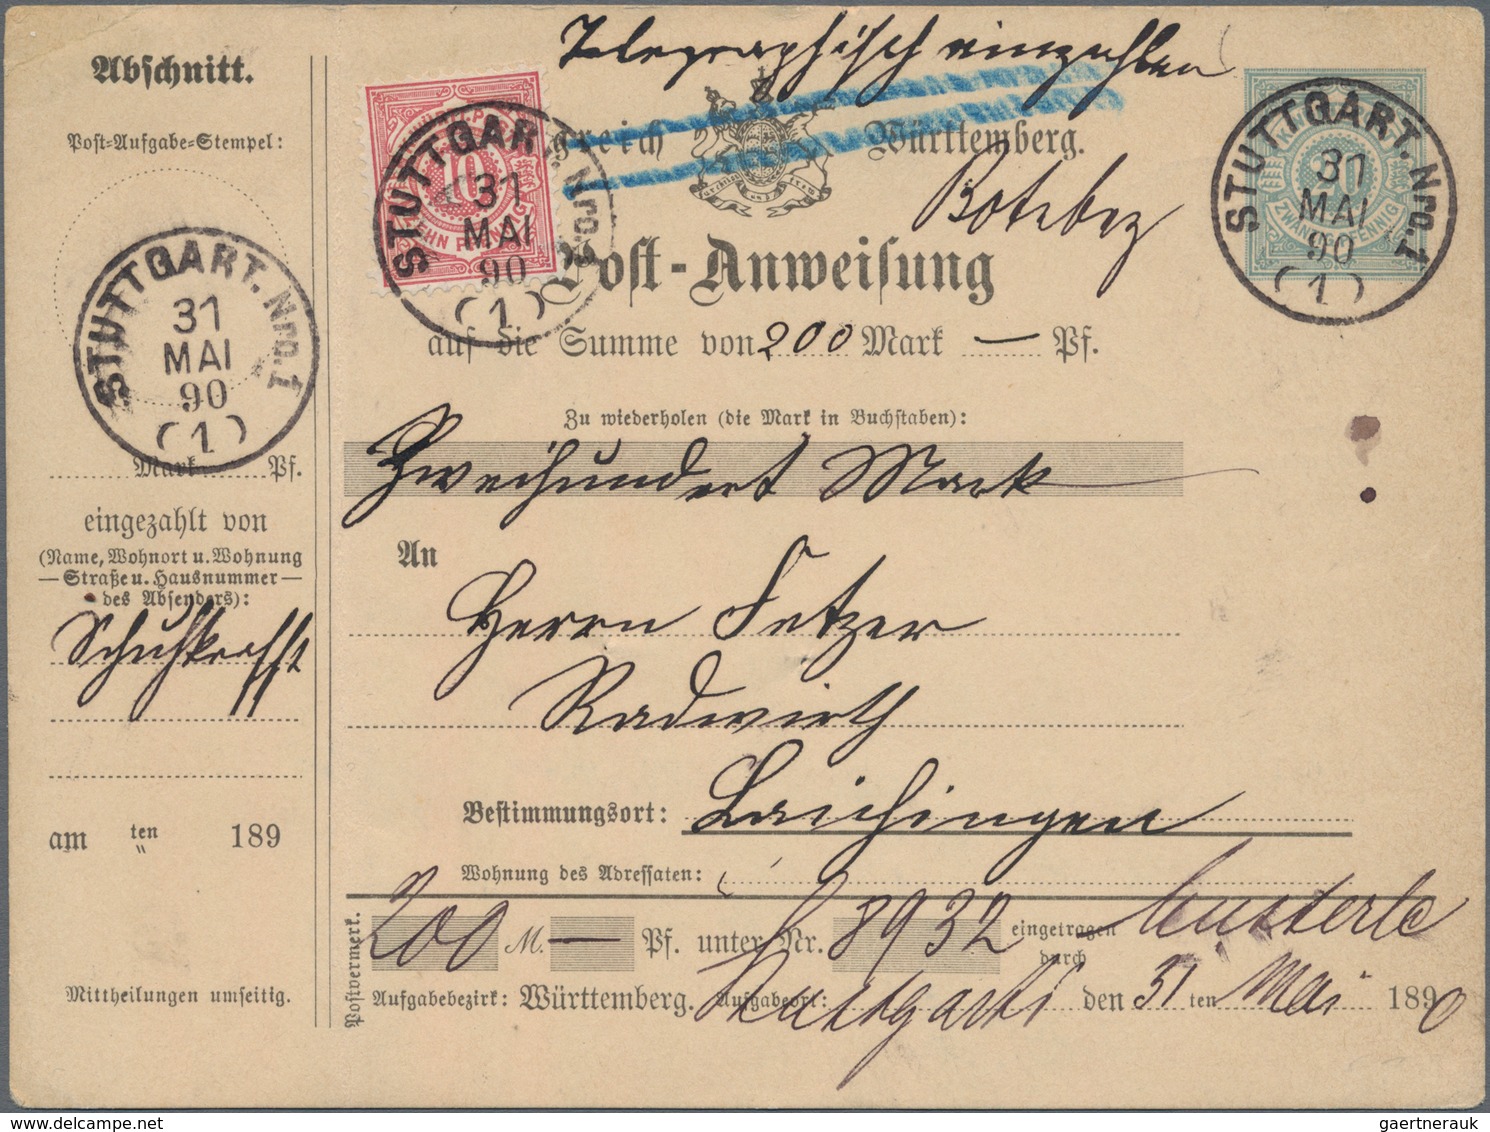 Telegraphisch einzahlen
Abschnitt.
Post-Aufgabe-Stempel:
STUTTGART. Nro. 1
31
MAI
90
(1)
Mark Pf.
eingezahlt von
(Name, Wohnort u. Wohnung
— Straße u. Hausnummer —
des Absenders):
Schuhkrafft
am ten 189
"
Mittheilungen umseitig.
10
ZEHN PFENNIG
STUTTGART. Nro. 1
31
MAI
90
(1)
greich Württemberg.
furchtlos und trew
20
ZWANZIG PFENNIG
STUTTGART. Nro. 1
31
MAI
90
(1)
Post-Anweisung
auf die Summe von 200 Mark — Pf.
Zu wiederholen (die Mark in Buchstaben):
Zweihundert Mark
An
Herrn Fetzer
Radwirth
Bestimmungsort: Laichingen
Wohnung des Adressaten:
Postvermerk.
200 M. — Pf. unter Nr. 8932 eingetragen
durch
Aufgabebezirk: Württemberg. Aufgabeort: Stuttgart 1 den 31 ten Mai 1890
gaertnerauk